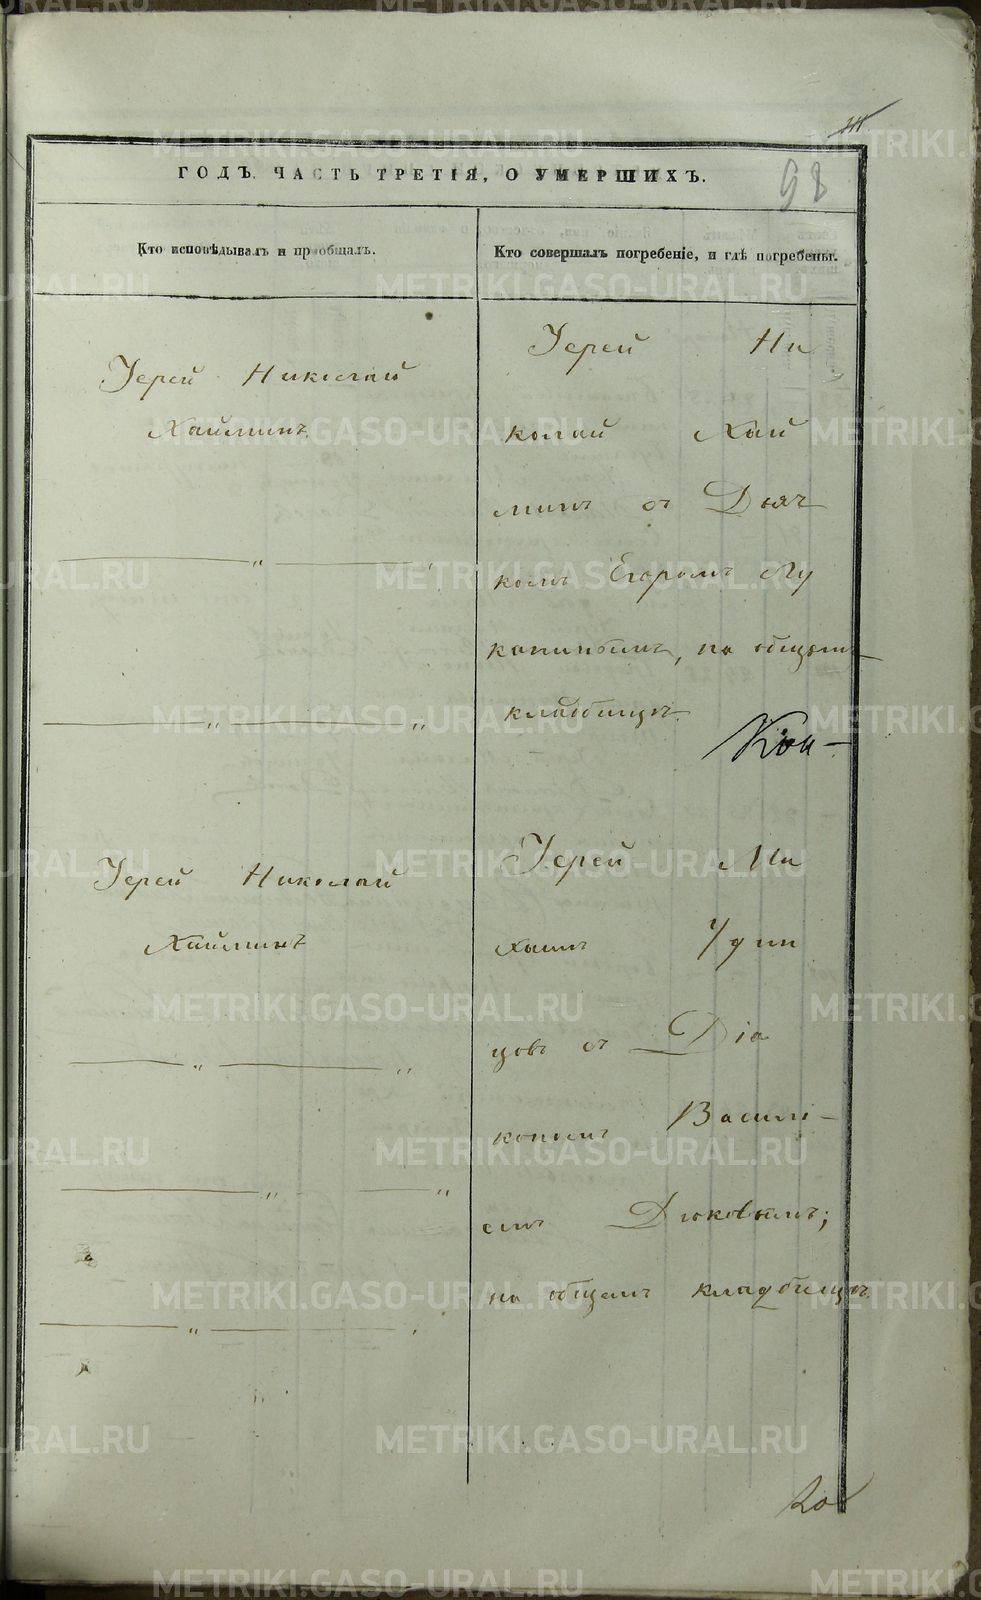 98
ГОДЪ. ЧАСТЬ ТРЕТІЯ, О УМЕРШИХЪ.
Кто исповѣдывалъ и пріобщалъ.
Кто совершалъ погребеніе, и гдѣ погребены.
Іерей Николай
Хайминъ
Іерей Ни
колай Хай
минъ съ Дьяч
комъ Егоромъ Лу
канинымъ, на общемъ
кладбищѣ.
Іерей Николай
Хайминъ
Іерей Ми
хаилъ Удин
цовъ съ Діа
кономъ Васили-
емъ Дюковымъ;
на общемъ кладбищѣ.
METRIKI.GASO-URAL.RU